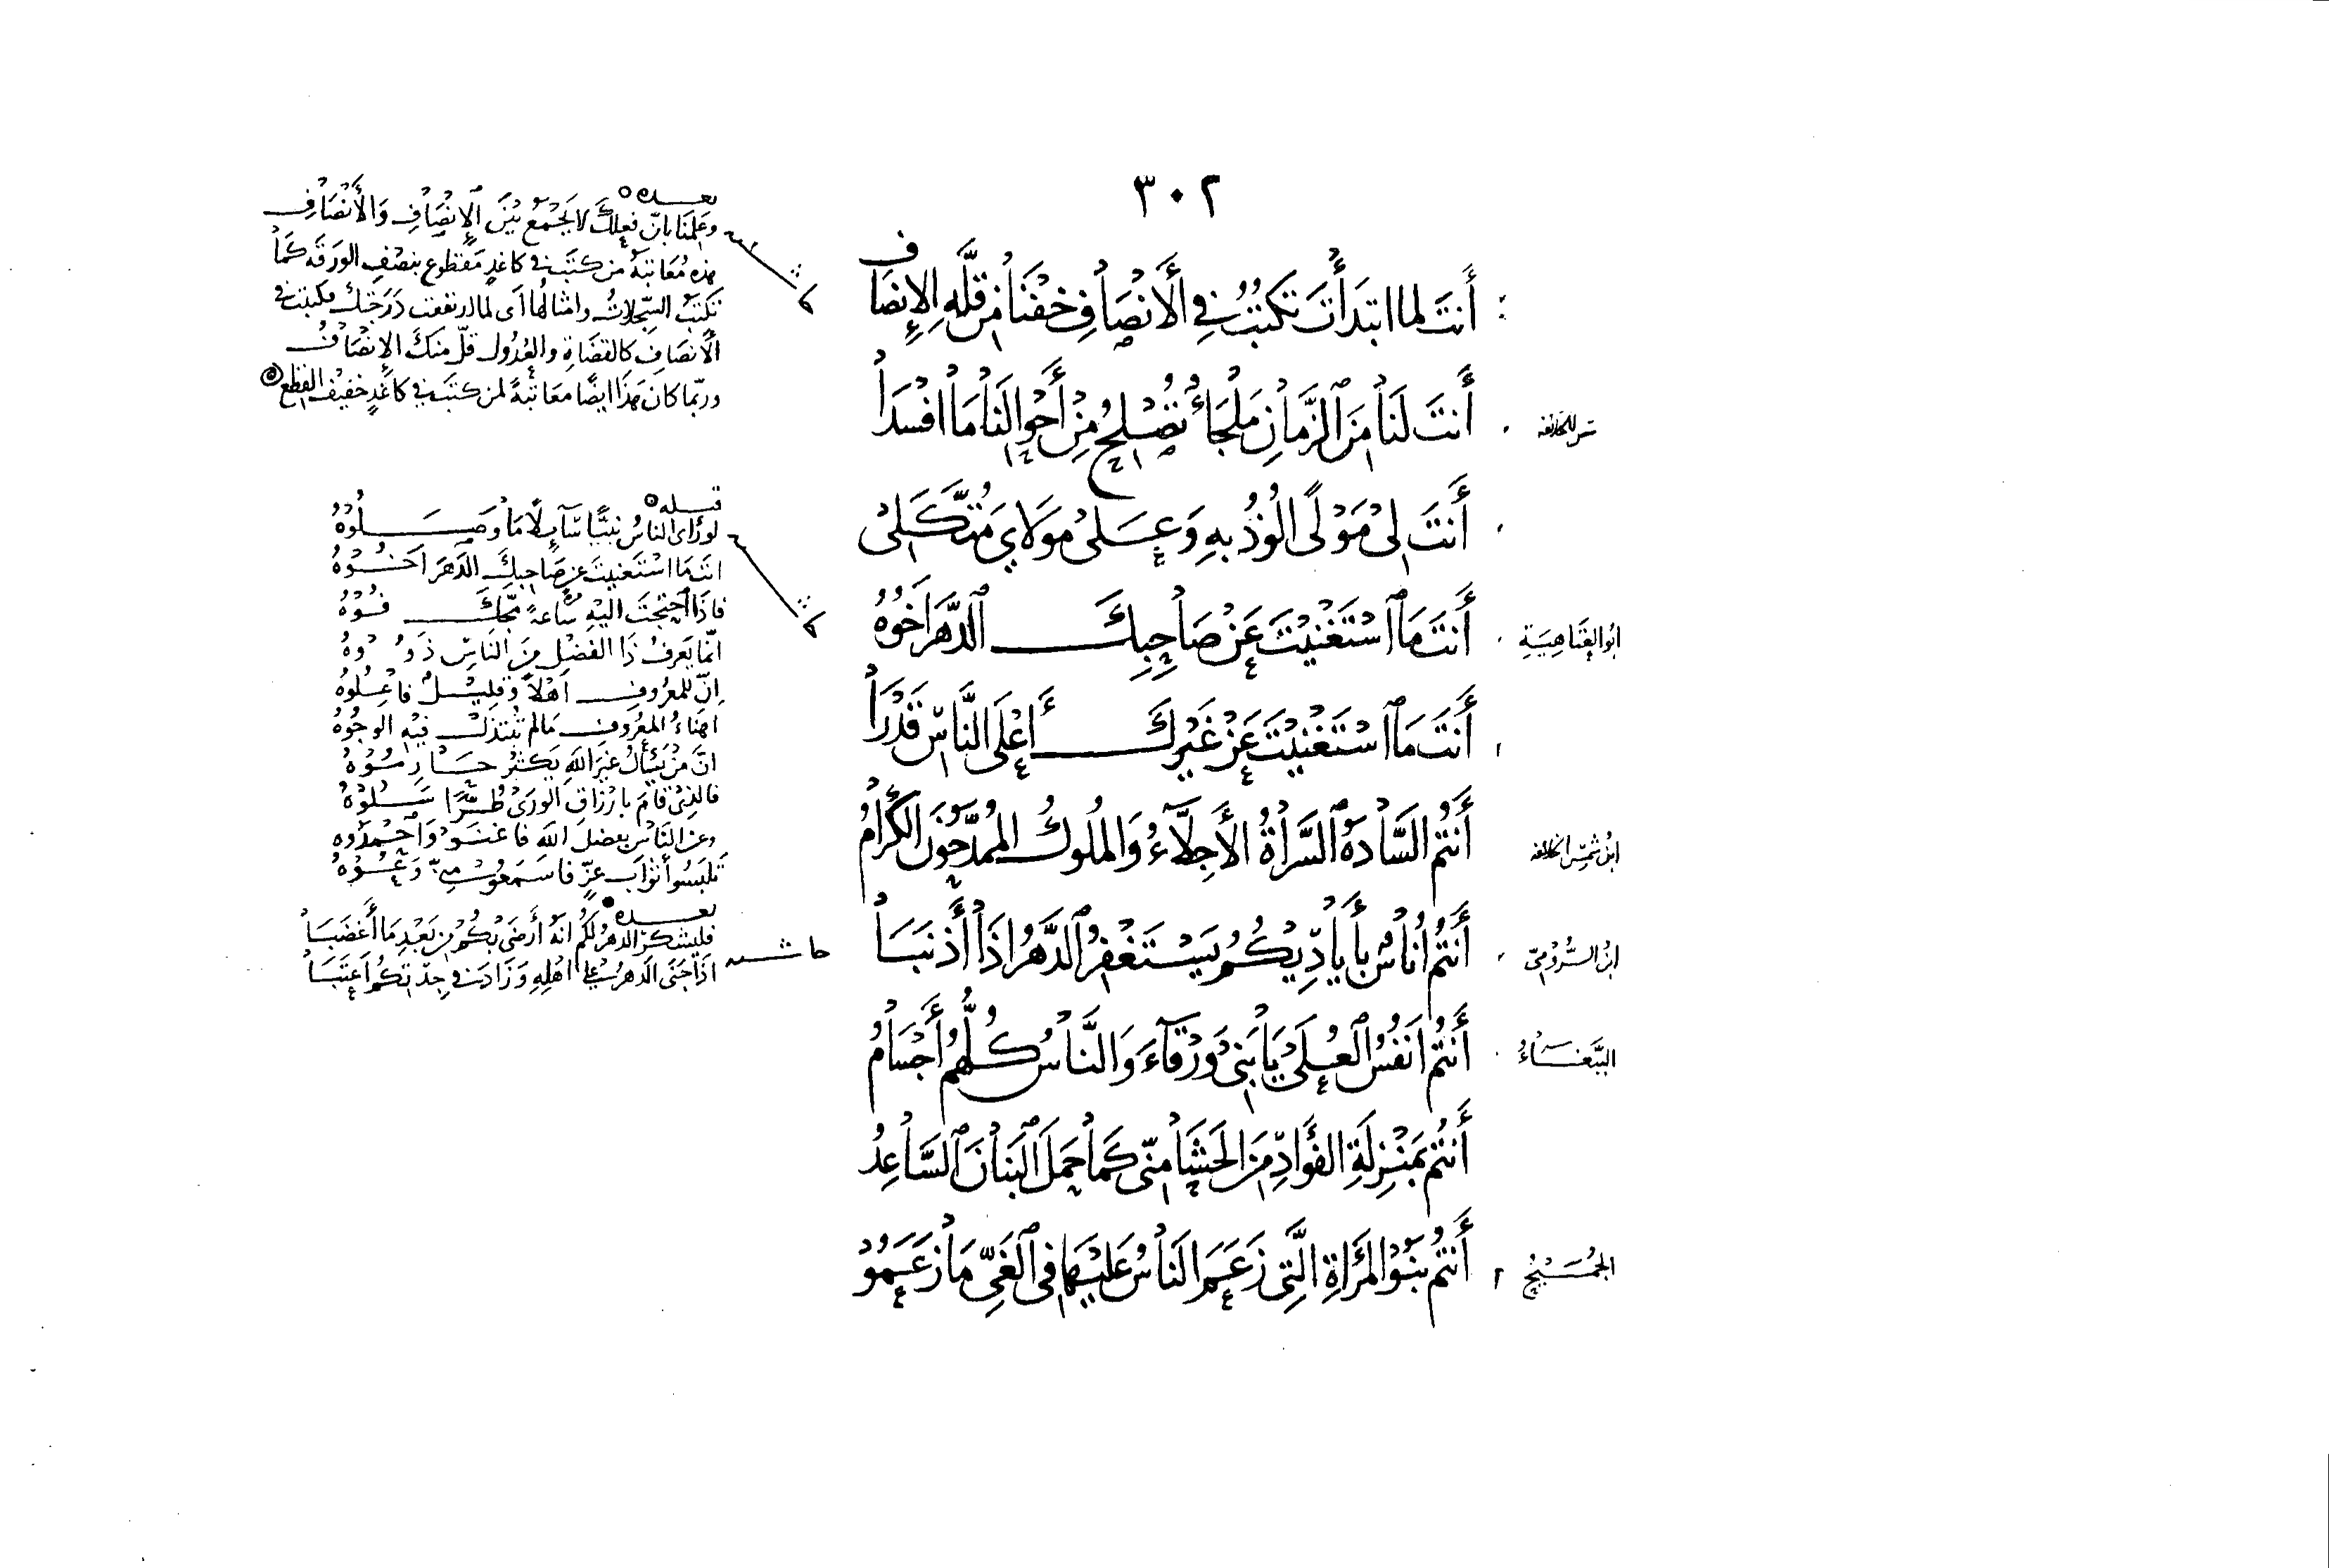 ٣٠٢
أَنتَ لما ابتَدَأْتَ تَكتبُ في الأَنْصَافِ خفْنَا من قلَّهِ الإِنصَاف
سر للخلافه
أَنتَ لَنَا مِنَ الزَّمَانِ مَلْجَأٌ تُصْلحُ مِنْ أَحْوَالِنَا مَا افسَدَا
أَنتَ لِىْ مَوْلًى الُوذُ بهِ وَعَلىْ مَولَايَ مُتَّكَلِىْ
ابُو العَتَاهِيَةِ
أَنتَ مَا اسْتَغْنَيْتَ عَنْ صَاحِبِكَ الدَّهرَ أَخُوْهُ
أَنتَ مَا اسْتَغْنَيْتَ عَنْ غَيْرِكَ أَعْلَى النَّاسِ قَدْرَا
ابن شمس الخلافه
أَنتُم السَّادةُ السَّرَاةُ الأَجِلَّآءُ وَالمُلُوكُ المُمدَّحُونَ الكِرَامُ
ابن الرُّوْمىّ
أَنتُم أُنَاسٌ بأَيَادِيكُم يَسْتَغْفِرُ الدَّهرُ اذَا أَذنَبَا
الببَّغَاءُ
أَنتُم أَنفُسُ العُلَى يَا بَنِىْ وَرْقآءَ وَالنَّاسُ كُلُّهُم أَجْسَامُ
أَنتُم بمَنْزِلَةِ الفُؤَادِ مِنَ الحَشَا مِنّى كَمَا حَمَلَ البَنانَ السَّاعِدُ
الجُمَيْحُ
أَنتُم بَنُو المَرأَةِ الَّتِى زَعَمَ النَّاسُ عَلَيْهَا فِى الغَىِّ مَا زَعَمُوْا
بعده
وَعَلِمْنَا بانّ فعلكَ لا يَجْمَعُ بَيْنَ الإِنْصَافِ وَالأَنْصَافِ
هذه مُعَاتبَةُ من كتَبَ في كاغدٍ مَقطوعٍ بنصْفِ الورَقَه كَمَا
تكتبُ السّجلاتُ وامثالُها أى لما ارتفعت دَرَجتكَ فكتبت في
الأنصَافِ كالقضَاةِ والعُدُول قلّ منكَ الإنصَافُ
وربّما كانَ هَذَا ايضًا معَاتبَةً لمن كتبَ في كاغدٍ خفيفِ القطع
حاشيه
قبله
لو رَأى الناسُ نبيًّا سَآئِلًا مَا وَصَلُوْهُ
انتَ مَا اسْتَغنيتَ عن صَاحبكَ الدّهرَ اَخُوْهُ
فاذَا احْتجتَ اليْهِ سَاعةً مجَّكَ فُوْهُ
انّما يَعرفُ ذَا الفَضْلِ مِنَ النَاسِ ذَوُوْهُ
إنّ للمعرُوفِ اَهْلًا وَقليْلٌ فاعلُوهُ
اهنَاءُ المعْرُوفِ مَالم تُبْتذلْ فيْهِ الوجُوْهُ
انَّ مَنْ يَسْأَلُ غيرَ اللهِ يَكثرُ حَارِمُوْهُ
فالذِىْ قامَ بارْزَاقِ الورَىْ طُرًّا سَلُوْهُ
وعن النَاسِ بفضلِ اللهِ فاغنَوْ وَاحْمدُوه
تلبَسُوا أثوَابَ عزٍّ فاسْمَعُوْا منّى وَعُوْهُ
بعده
فليَشكرِ الدهرُ لكُم انّهُ أرضَى بكُم من بَعْدِ مَا أَغضَبَا
اذَا جَنَى الدهرُ على اهْلِهِ وَزَادَ في جدّتكم اَعتَبَا
حاشيه